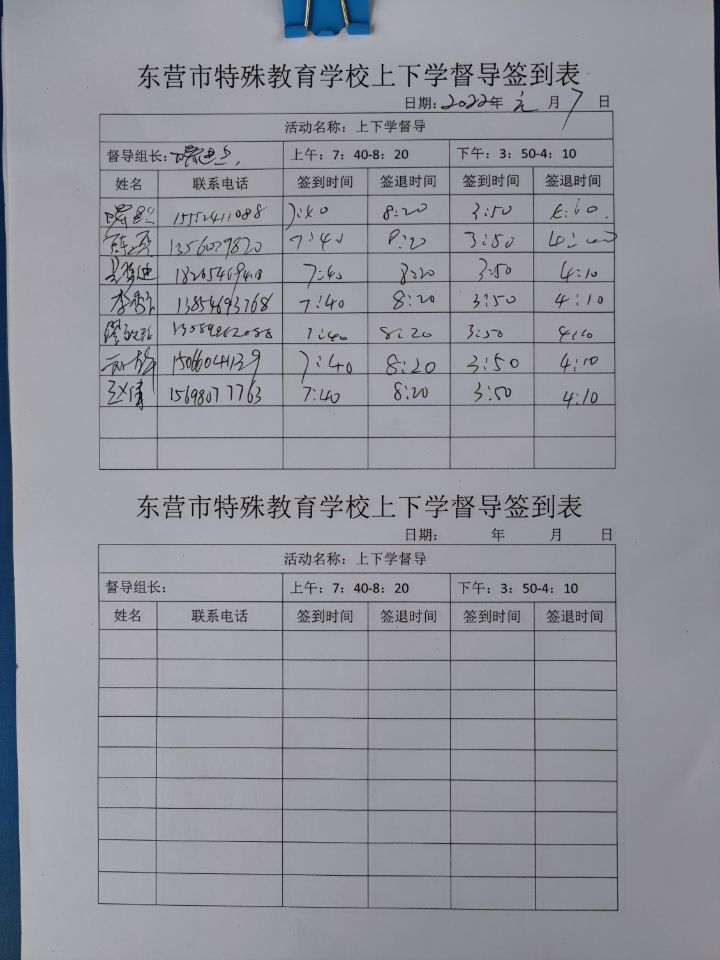 东营市特殊教育学校上下学督导签到表
日期：2022年 元 月 7 日
活动名称：上下学督导
督导组长： 上午：7：40-8：20 下午：3：50-4：10
姓名 联系电话 签到时间 签退时间 签到时间 签退时间
7:40 8:20 3:50
7:40 8:20 3:50
7:40 8:20 3:50 4:10
李 13854693768 7:40 8:20 3:50 4:10
7:40 8:20 3:50 4:10
15066044139 7:40 8:20 3:50 4:10
15698077763 7:40 8:20 3:50 4:10
东营市特殊教育学校上下学督导签到表
日期： 年 月 日
活动名称：上下学督导
督导组长： 上午：7：40-8：20 下午：3：50-4：10
姓名 联系电话 签到时间 签退时间 签到时间 签退时间